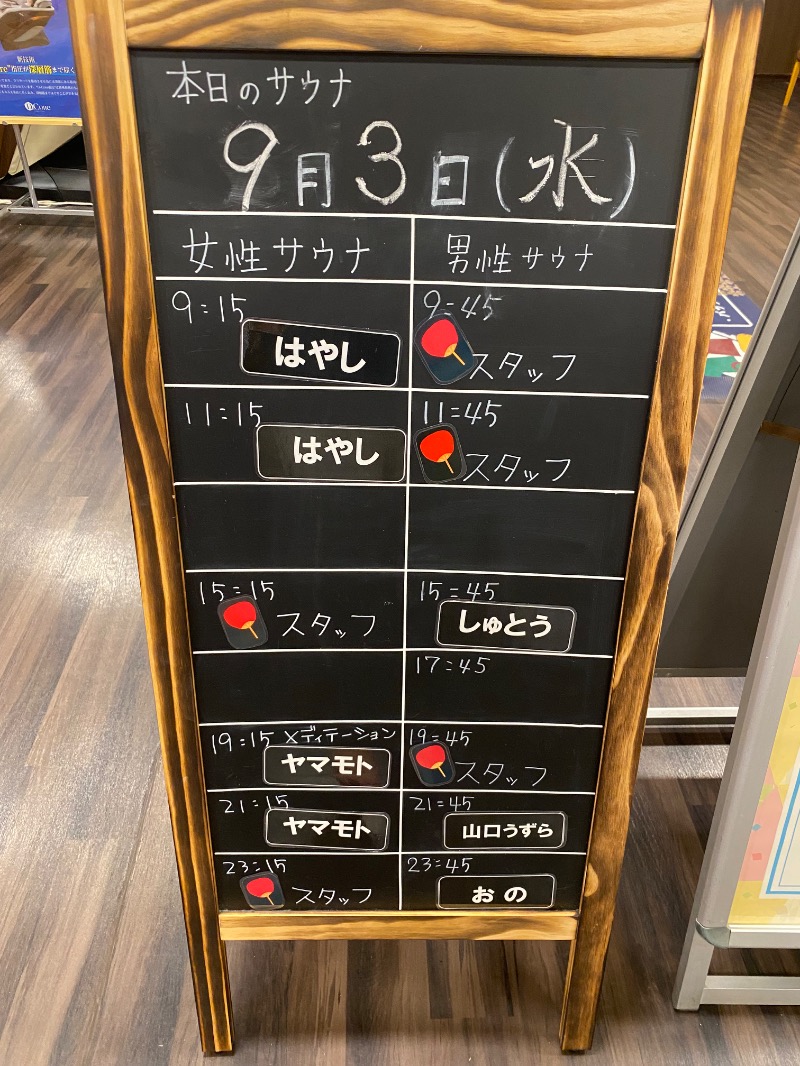 新技術
圧が深層筋まで届く
Cone
本日のサウナ
9月3日(水)
女性サウナ
男性サウナ
9:15
はやし
9:45
スタッフ
11:15
はやし
11:45
スタッフ
15:15
スタッフ
15:45
しゅとう
17:45
19:15 メディテーション
ヤマモト
19:45
スタッフ
21:15
ヤマモト
21:45
山口うずら
23:15
スタッフ
23:45
おの